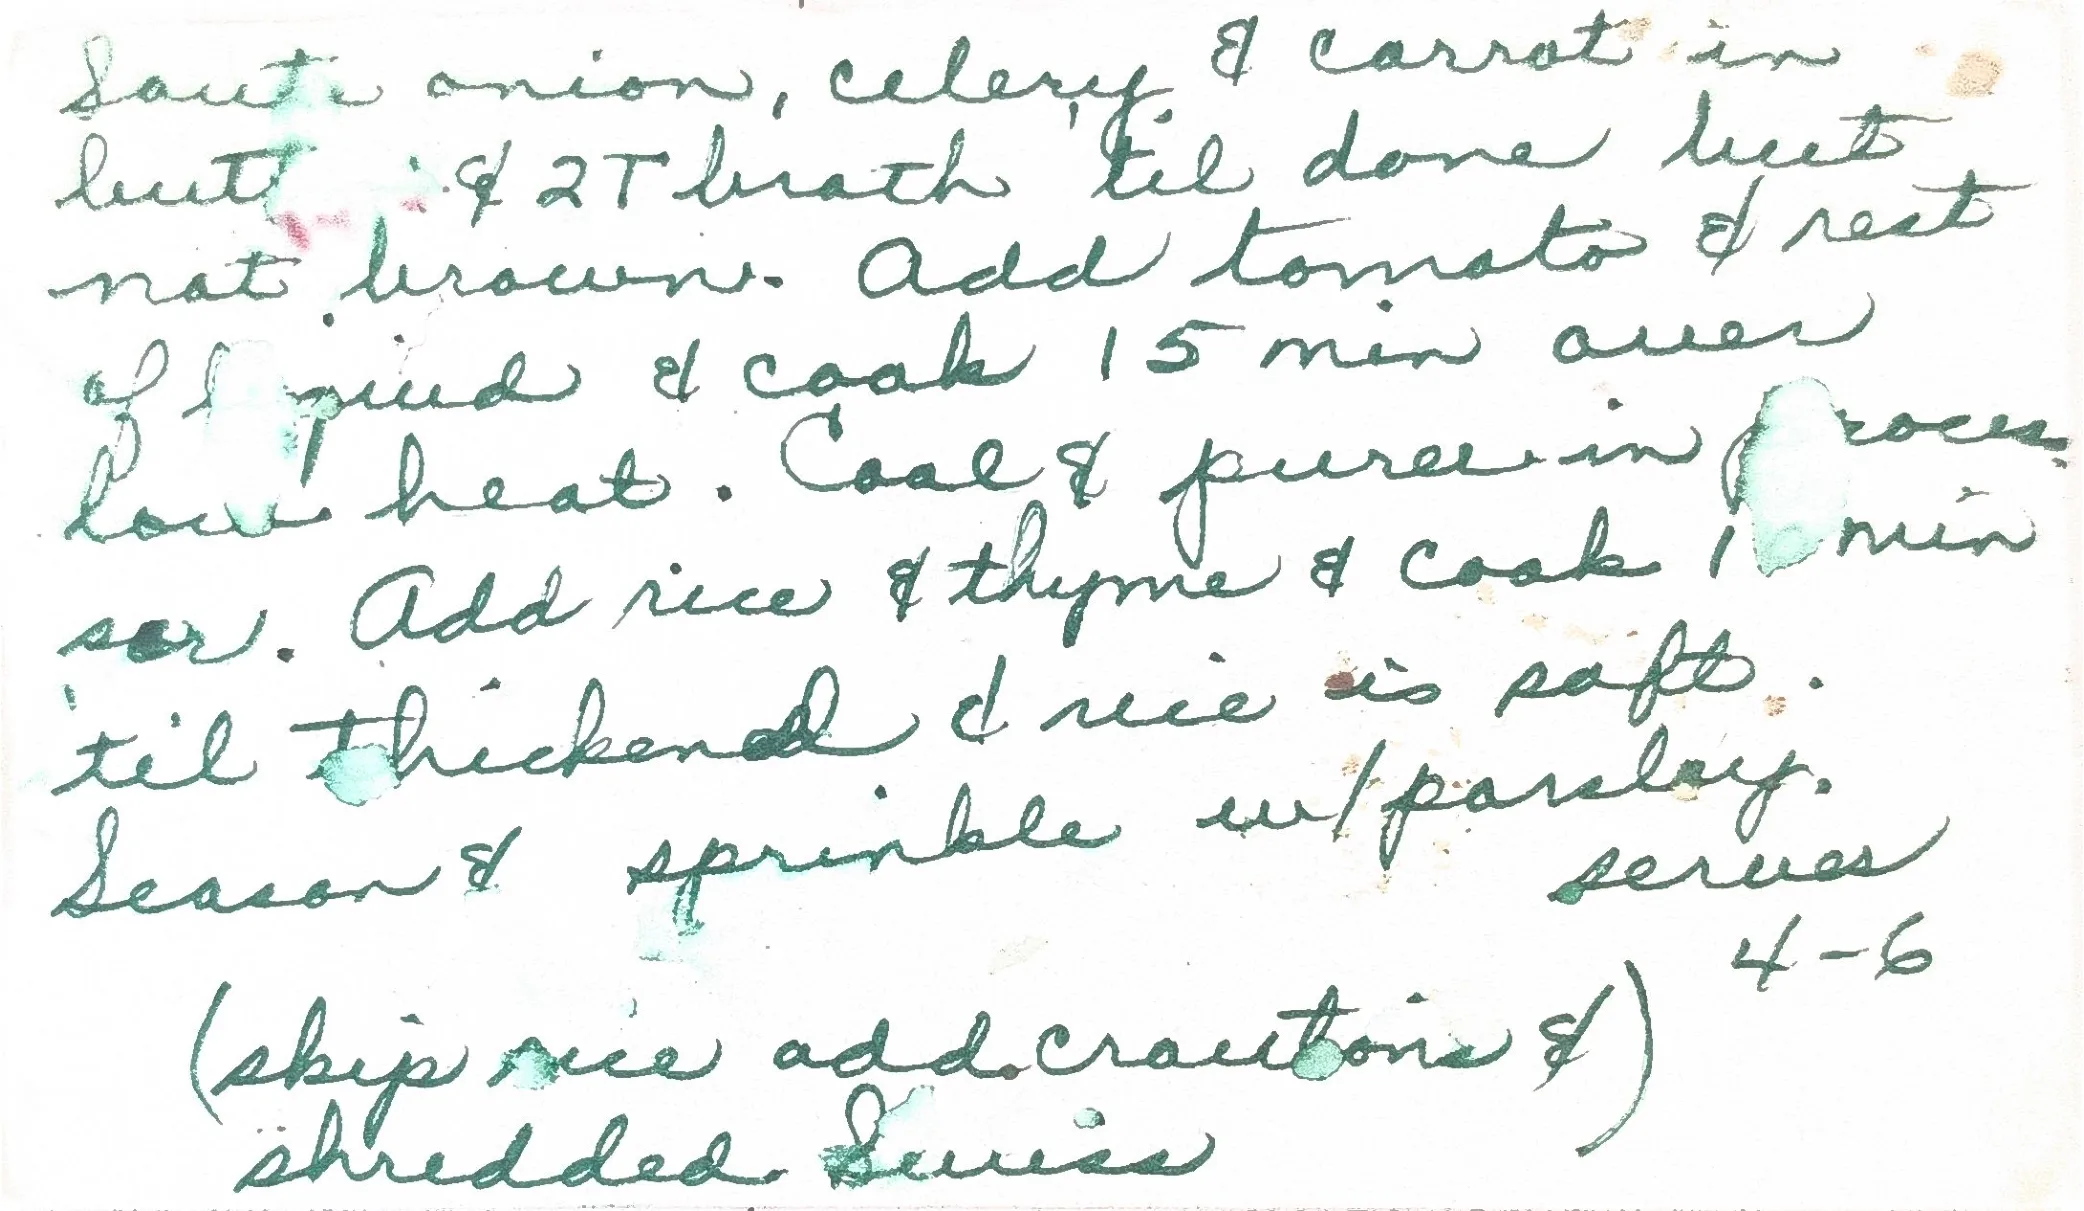 Saute onion, celery & carrot in
butt & 2T broth 'til done but
not brown. Add tomato & rest
of liquid & cook 15 min over
low heat. Cool & puree in proces
sor. Add rice & thyme & cook min
'til thickened & rice is soft.
Season & sprinkle w/parsley.
serves
4-6
(skip rice add croutons &)
shredded Swiss